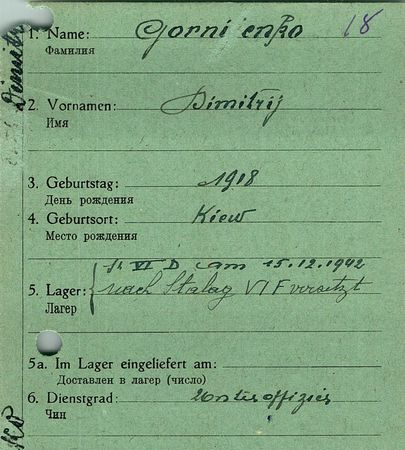 18
1. Name: Gornijenko
Фамилия
2. Vornamen: Dimitrij
Имя
3. Geburtstag: 1918
День рождения
4. Geburtsort: Kiew
Место рождения
VI D am 15.12.1942
5. Lager: nach Stalag VI F versetzt
Лагер
5a. Im Lager eingeliefert am:
Доставлен в лагер (число)
6. Dienstgrad: Unteroffizier
Чин